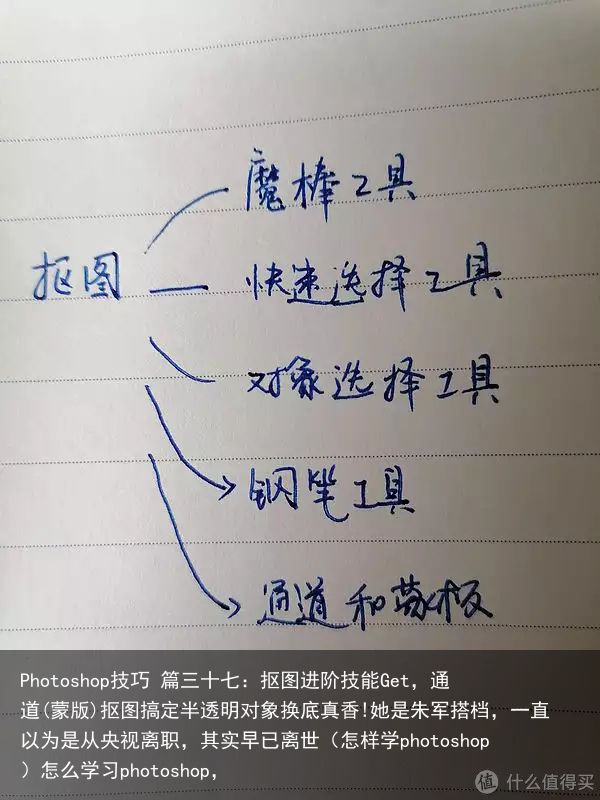 魔棒工具
抠图
快速选择工具
对象选择工具
钢笔工具
通道和蒙板
Photoshop技巧 篇三十七：抠图进阶技能Get，通
道(蒙版)抠图搞定半透明对象换底真香!她是朱军搭档，一直
以为是从央视离职，其实早已离世（怎样学photoshop
）怎么学习photoshop，
值 什么值得买